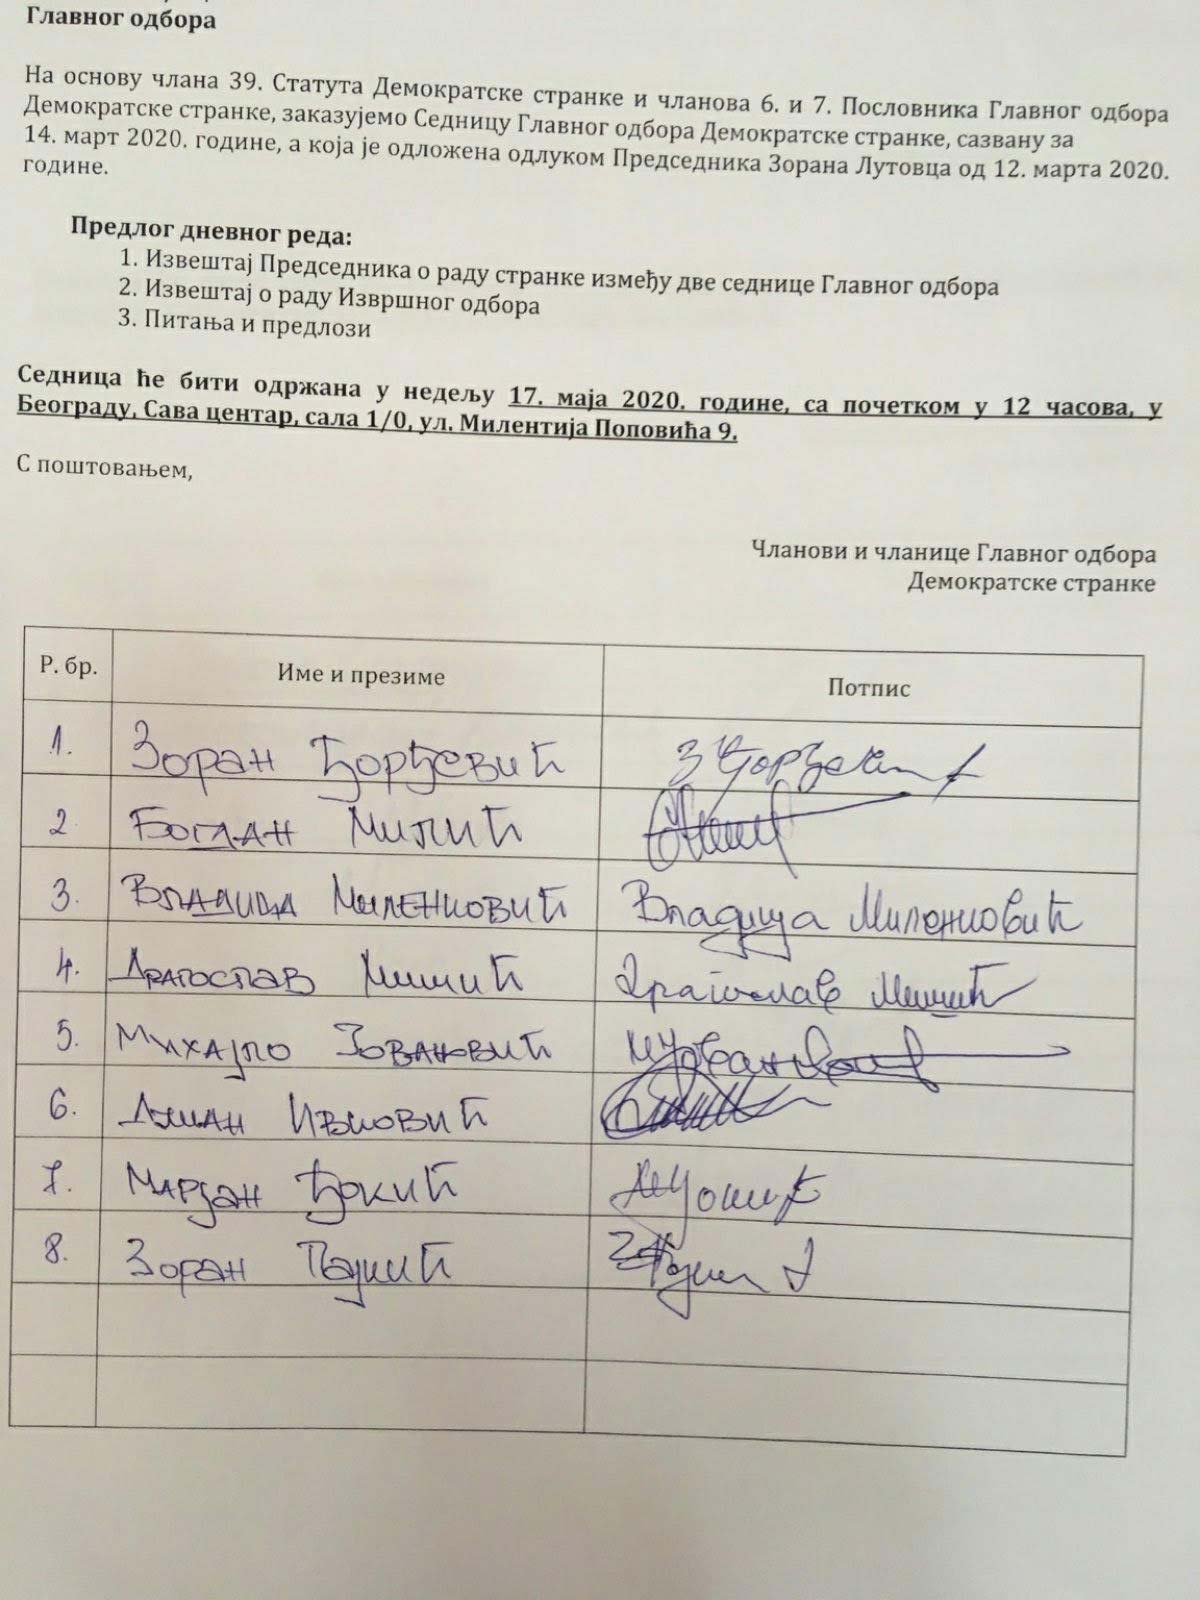 Главног одбора
На основу члана 39. Статута Демократске странке и чланова 6. и 7. Пословника Главног одбора
Демократске странке, заказујемо Седницу Главног одбора Демократске странке, сазвану за
14. март 2020. године, а која је одложена одлуком Председника Зорана Лутовца од 12. марта 2020.
године.
Предлог дневног реда:
1. Извештај Председника о раду странке између две седнице Главног одбора
2. Извештај о раду Извршног одбора
3. Питања и предлози
Седница ће бити одржана у недељу 17. маја 2020. године, са почетком у 12 часова, у
Београду, Сава центар, сала 1/0, ул. Милентија Поповића 9.
С поштовањем,
Чланови и чланице Главног одбора
Демократске странке
Р. бр. Име и презиме Потпис
1. Зоран Ђорђевић
2. Богдан Милић
3. Владица Миленковић Владица Миленковић
4. Драгослав Мишић Драгослав Мишић
5. Михајло Јовановић
6. Ивковић
7. Марјан Ђокић
8. Зоран Пајкић